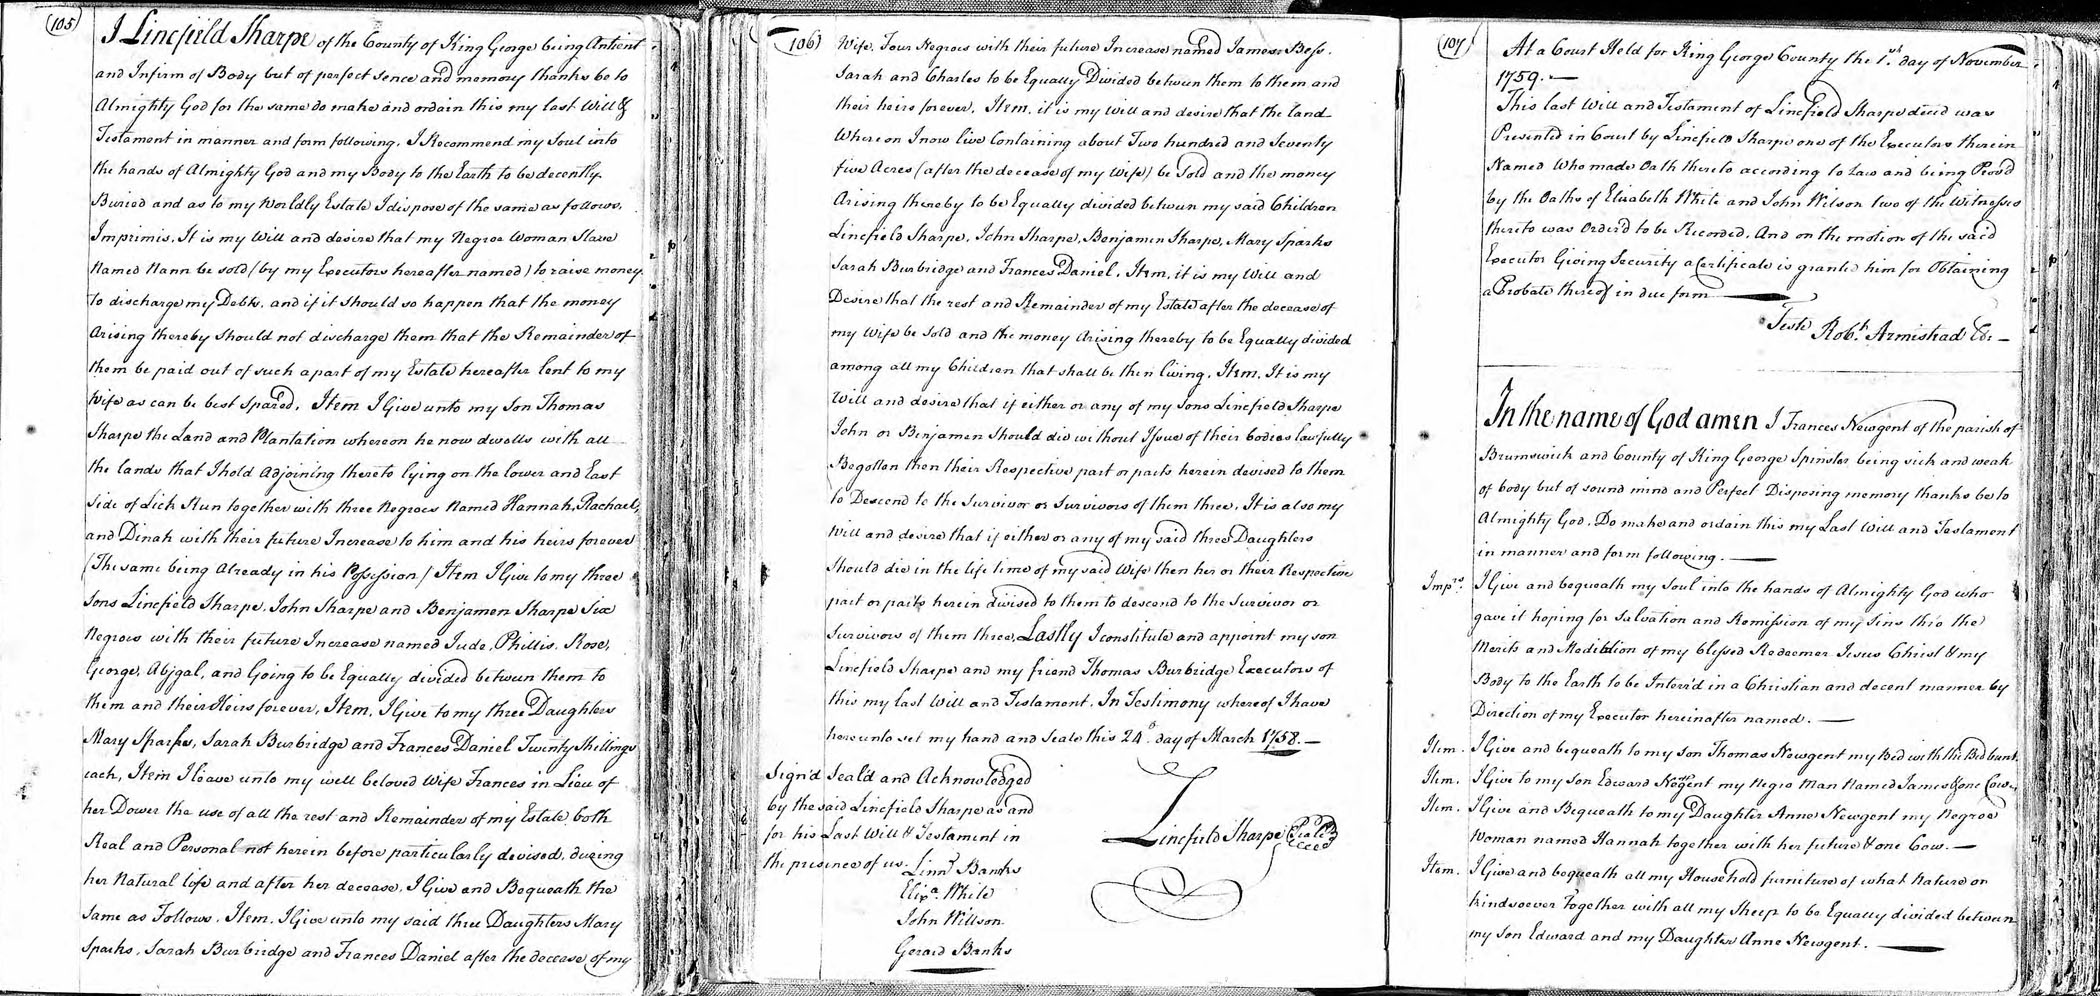 (105)
I Lincfield Sharpe of the County of King George being Antient
and Infirm of Body but of perfect sence and memory thanks be to
Almighty God for the same do make and ordain this my last Will &
Testament in manner and form following. I Recommend my Soul into
the hands of Almighty God and my Body to the Earth to be decently
Buried and as to my Worldly Estate I dispose of the same as follows.
Imprimis, It is my Will and desire that my Negroe Woman Slave
Named Nann be sold (by my Executors hereafter named) to raise money
to discharge my Debts, and if it should so happen that the money
Arising thereby should not discharge them that the Remainder of
them be paid out of such a part of my Estate hereafter lent to my
Wife as can be best spared. Item I Give unto my Son Thomas
Sharpe the Land and Plantation whereon he now dwells with all
the lands that I hold adjoining thereto lying on the lower and East
side of Lick Run together with three Negroes Named Hannah, Rachael,
and Dinah with their future Increase to him and his heirs forever
(The same being Already in his Possession) Item I Give to my three
sons Lincfield Sharpe, John Sharpe and Benjamen Sharpe Six
Negroes with their future Increase named Jude, Phillis, Rose,
George, Abjgal, and Going to be Equally divided between them to
them and their Heirs forever, Item, I Give to my three Daughters
Mary Sparks, Sarah Burbridge and Frances Daniel Twenty Shillings
each, Item I leave unto my well beloved Wife Frances in Lieu of
her Dower the use of all the rest and Remainder of my Estate both
Real and Personal not herein before particularly devised, during
her Natural life and after her decease, I Give and Bequeath the
same as Follows. Item, I Give unto my said three Daughters Mary
Sparks, Sarah Burbridge and Frances Daniel after the decease of my
(106)
Wife, Four Negroes with their future Increase named James Bess.
Sarah and Charles to be Equally Divided between them to them and
their heirs forever. Item, it is my Will and desire that the land
Whereon I now live Containing about Two hundred and Seventy
five Acres (after the decease of my Wife) be Sold and the money
Arising thereby to be Equally divided between my said Children
Lincfield Sharpe, John Sharpe, Benjamin Sharpe, Mary Sparks
Sarah Burbridge and Frances Daniel. Item, it is my Will and
Desire that the rest and Remainder of my Estate after the decease of
my Wife be Sold and the money Arising thereby to be Equally divided
among all my Children that shall be then living. Item, It is my
Will and desire that if either or any of my Sons Lincfield Sharpe
John or Benjamen should die without Issue of their bodies lawfully
Begotton then their Respective part or parts herein devised to them
to Descend to the Survivor or Survivors of them three, It is also my
Will and desire that if either or any of my said three Daughters
should die in the life time of my said Wife then her or their Respective
part or parts herein divised to them to descend to the Survivor or
Survivors of them three, Lastly I constitute and appoint my son
Lincfield Sharpe and my friend Thomas Burbridge Executors of
this my last Will and Testament. In Testimony whereof I have
hereunto set my hand and Seale this 24th day of March 1758.
Sign'd Seald and Acknowledged
by the said Lincfield Sharpe as and
for his Last Will & Testament in
the presence of us. Linn Banks
Lincfield Sharpe (Seale)
Eliza. White
John Willson
Gerard Banks
(107)
At a Court Held for King George County the 1st. day of November
1759.
This last Will and Testament of Lincfield Sharpe deced was
Presented in Court by Lincfield Sharpe one of the Executors therein
Named Who made Oath thereto according to Law and being Prov'd
by the Oaths of Elizabeth White and John Wilson two of the Witnesses
thereto was Order'd to be Recorded. And on the motion of the said
Executor Giving Security a Certificate is granted him for Obtaining
a Probate thereof in due form
Teste Robt. Armistead
In the name of God amen I Frances Newgent of the parish of
Brunswick and County of King George Spinster being sick and weak
of body but of sound mind and Perfect Disposing memory thanks be to
Almighty God, Do make and ordain this my Last Will and Testament
in manner and form following.
Imprs. I Give and bequeath my Soul into the hands of Almighty God who
gave it hoping for Salvation and Remission of my Sins thro the
Merits and Mediation of my blessed Redeemer Jesus Christ & my
Body to the Earth to be Interr'd in a Christian and decent manner by
Direction of my Executor hereinafter named.
Item. I Give and bequeath to my Son Thomas Newgent my Bed with the
Item. I Give to my Son Edward Newgent my Negro Man Named James & one Cow.
Item. I Give and Bequeath to my Daughter Anne Newgent my Negroe
Woman named Hannah together with her future & one Cow.
Item. I Give and bequeath all my Household furniture of what Nature or
kindsoever Together with all my Sheep to be Equally divided between
my Son Edward and my Daughter Anne Newgent.